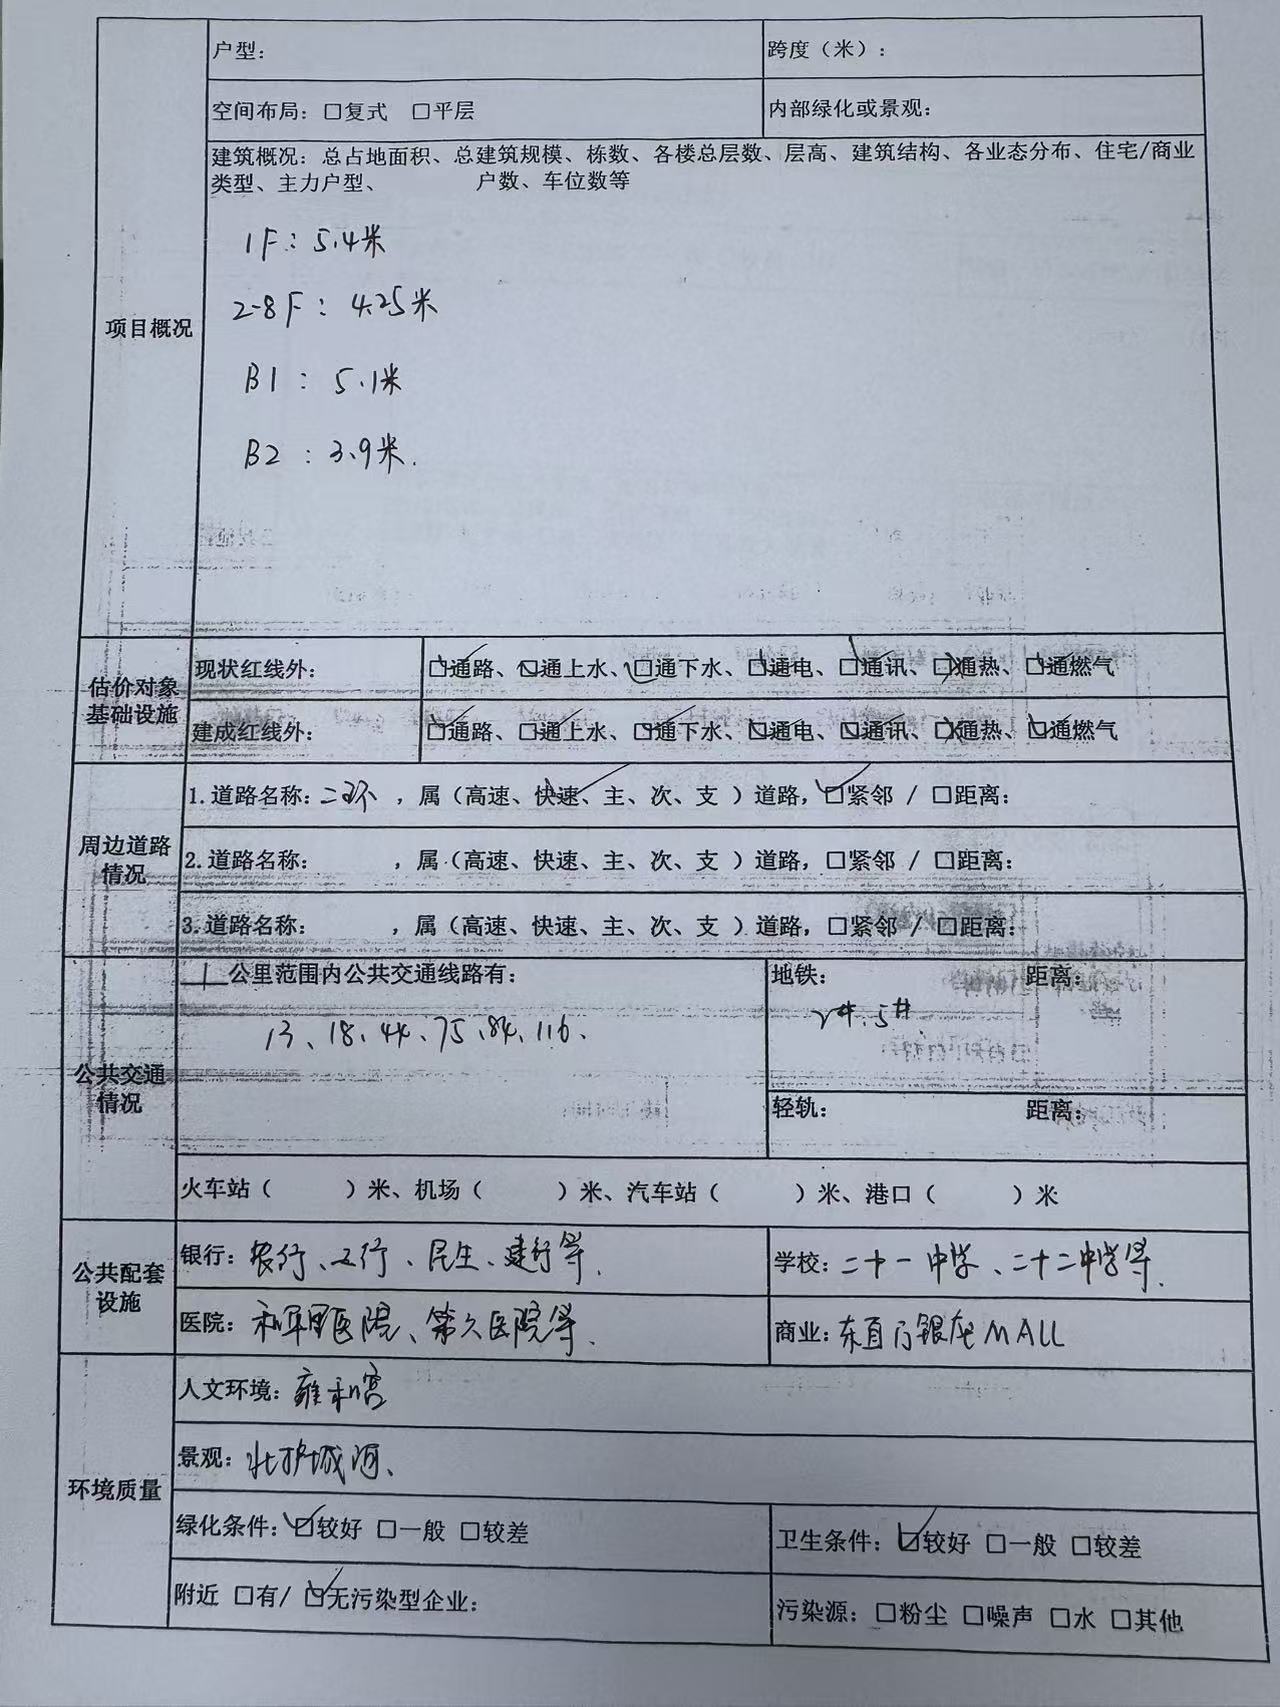 户型：
跨度（米）：
空间布局：□复式 □平层
内部绿化或景观：
项目概况
建筑概况：总占地面积、总建筑规模、栋数、各楼总层数、层高、建筑结构、各业态分布、住宅/商业
类型、主力户型、 户数、车位数等
1F：5.4米
2-8F：4.25米
B1：5.1米
B2：3.9米.
估价对象
基础设施
现状红线外：
☑通路、☑通上水、☑通下水、☑通电、☑通讯、☑通热、☑通燃气
建成红线外：
☑通路、☑通上水、☑通下水、☑通电、☑通讯、☑通热、☑通燃气
周边道路
情况
1.道路名称：二环 ，属（高速、快速、主、次、支 ）道路，☑紧邻 / □距离：
2.道路名称： ，属（高速、快速、主、次、支 ）道路，□紧邻 / □距离：
3.道路名称： ，属（高速、快速、主、次、支 ）道路，□紧邻 / □距离：
公共交通
情况
1公里范围内公共交通线路有：
13、18、44、75、84、116、
地铁： 距离：
2#、5#
轻轨： 距离：
火车站（ ）米、机场（ ）米、汽车站（ ）米、港口（ ）米
公共配套
设施
银行：农行、工行、民生、建行等.
学校：二十一中学、二十二中学等.
医院：和平里医院、第六医院等.
商业：东直门银座MALL
环境质量
人文环境：雍和宫
景观：北护城河、
绿化条件：☑较好 □一般 □较差
卫生条件：☑较好 □一般 □较差
附近 □有/ ☑无污染型企业：
污染源：□粉尘 □噪声 □水 □其他